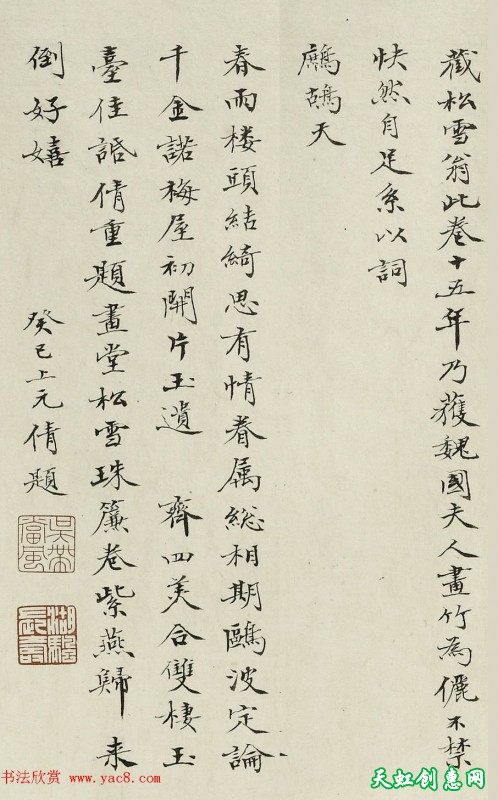 藏松雪翁此卷十五年乃獲魏國夫人畫竹為儷不禁
怏然自足系以詞
鷓鴣天
春雨楼頭結綺思有情眷属総相期鷗波定論
千金諾梅屋初開片玉遺 齊四美合雙棲玉
臺佳話倩重題畫堂松雪珠簾卷紫燕歸来
倒好嬉
癸巳上元倩題
吴帶當風
湖颿長壽
书法欣赏 www.yac8.com
天虹创惠网